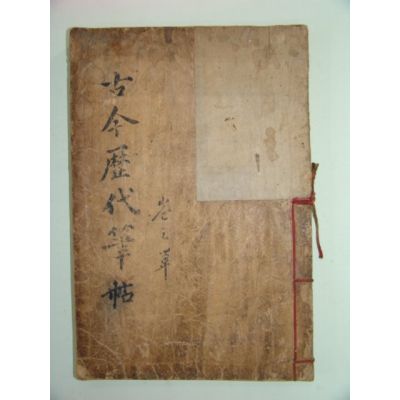 古今歷代筆帖
卷之